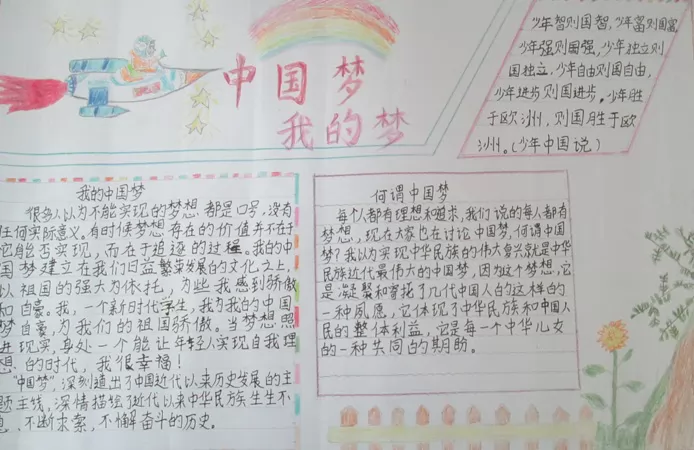 中国梦
我的梦
少年智则国智，少年富则国富
少年强则国强，少年独立则
国独立，少年自由则国自由，
少年进步则国进步。少年胜
于欧洲，则国胜于欧
洲。（少年中国说）
我的中国梦
很多人以为不能实现的梦想都是口号，没有
任何实际意义。有时侯梦想存在的价值并不在于
它能否实现，而在于追逐的过程。我的中
国梦建立在我们日益繁荣发展的文化之上，
以祖国的强大为依托，为些我感到骄傲
和自豪。我，一个新时代学生，我为我的中国
梦自豪，为我们的祖国骄傲。当梦想照
进现实，身处一个能让年轻人实现自我理
想的时代，我很幸福！
“中国梦”，深刻道出了中国近代以来历史发展的主
题主线，深情描绘了近代以来中华民族生生不
息、不断求索，不懈奋斗的历史。
何谓中国梦
每个人都有理想和追求，我们说的每人都有
梦想，现在大家也在讨论中国梦，何谓中国
梦？我以为实现中华民族的伟大复兴就是中华
民族近代最伟大的中国梦，因为这个梦想，它
是凝聚和寄托了几代中国人的这样的
一种夙愿，它体现了中华民族和中国人
民的整体利益，它是每一个中华儿女
的一种共同的期盼。